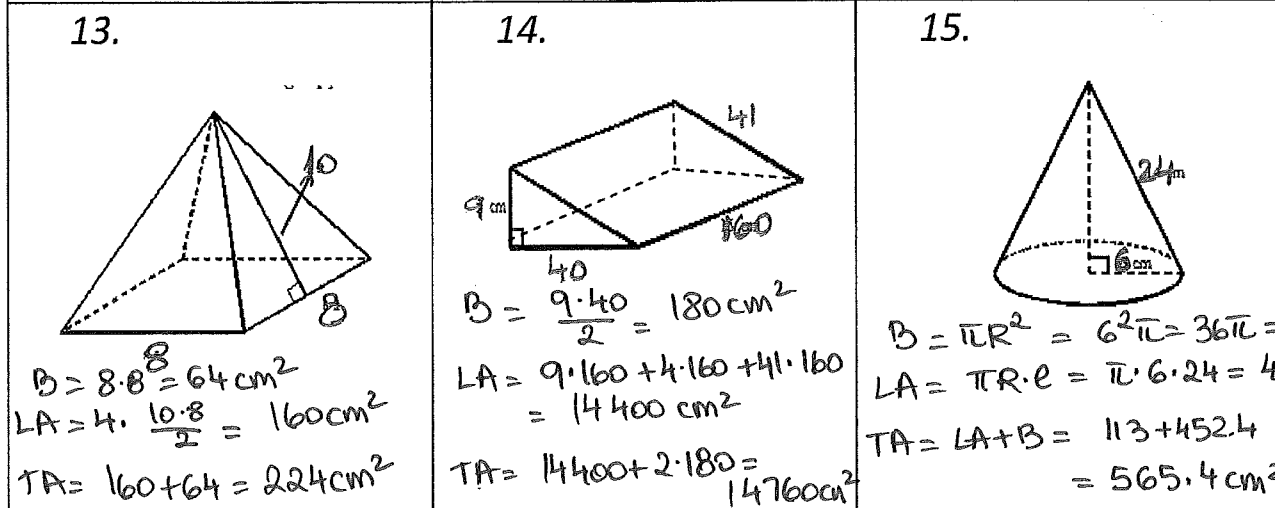 13.
10
8
8
B = 8·8 = 64 cm²
LA = 4· 10·8/2 = 160 cm²
TA = 160 + 64 = 224 cm²
14.
41
9 cm
160
40
B = 9·40/2 = 180 cm²
LA = 9·160 + 4·160 + 41·160
= 14 400 cm²
TA = 14400 + 2·180 =
14760 cm²
15.
24m
6 cm
B = πR² = 6²π = 36π =
LA = πR·l = π·6·24 = 4
TA = LA + B = 113 + 452.4
= 565.4 cm²